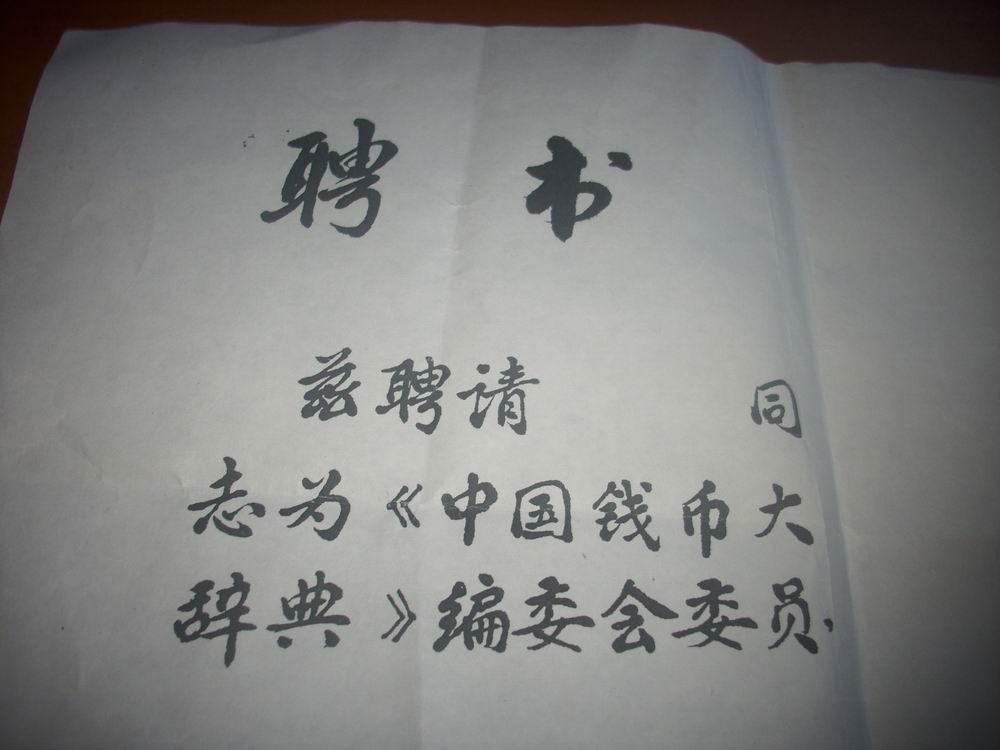 聘 书
兹聘请 同
志为《中国钱币大
辞典》编委会委员.